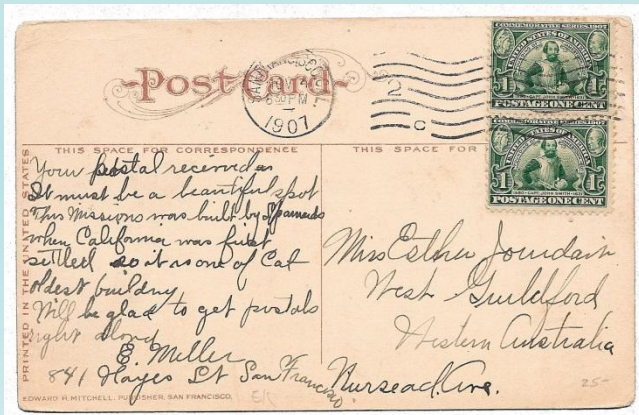 Post Card
SAN FRANCISCO, CAL.
6 30 PM
1907
2
C
COMMEMORATIVE SERIES 1907
UNITED STATES OF AMERICA
1 1
POSTAGE ONE CENT
COMMEMORATIVE SERIES 1907
UNITED STATES OF AMERICA
1580 CAPT. JOHN SMITH 1631
1 1
POSTAGE ONE CENT
THIS SPACE FOR CORRESPONDENCE
THIS SPACE FOR
PRINTED IN THE UNITED STATES
Your postal received
It must be a beautiful spot
This Missions was built by Spaniards
when California was first
settled so it is one of Cal
oldest building
Will be glad to get postals
right along
E. Miller
841 Hayes St San Francisco
Miss Esther Jourdain
West Guildford
Western Australia
Nursead. Ave.
EDWARD H. MITCHELL, PUBLISHER, SAN FRANCISCO.
25-